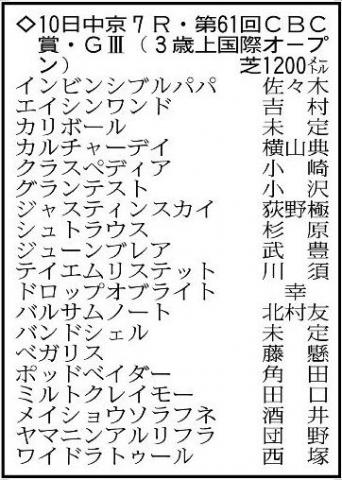 ◇10日中京7R・第61回CBC
賞・GⅢ(3歳上国際オープ
ン) 芝1200メートル
インビンシブルパパ 佐々木
エイシンワンド 吉村
カリボール 未定
カルチャーデイ 横山典
クラスペディア 小崎
グランテスト 小沢
ジャスティンスカイ 荻野極
シュトラウス 杉原
ジューンブレア 武豊
テイエムリステット 川須
ドロップオブライト 幸
バルサムノート 北村友
バンドシェル 未定
ベガリス 藤懸
ポッドベイダー 角田
ミルトクレイモー 田口
メイショウソラフネ 酒井
ヤマニンアルリフラ 団野
ワイドラトゥール 西塚